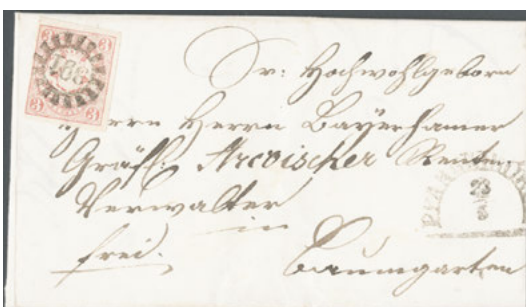 3 3
3 3
Sr: Hochwohlgeborn
Herrn Herrn Bayerhamer
Gräfl: Arcoischer Renten
Verwalter
in
frei.
Baumgarten
23